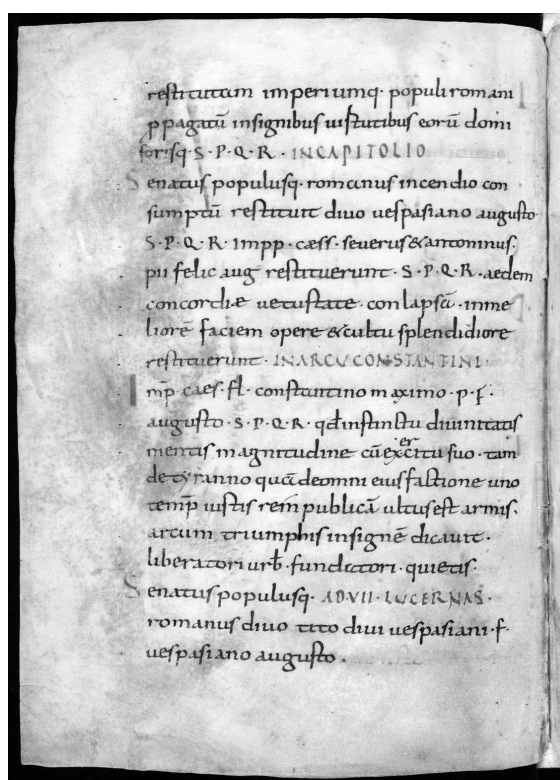 restitutam imperiumq· populi romani
ꝓpagatū insignibus uistutibus eorū domi
forisq· S·P·Q·R· INCAPITOLIO
Senatus populusq· romanus incendio con
sumptū restituit diuo uespasiano augusto·
S·P·Q·R· impp· cæss· seuerus &antoninus·
pii felic aug restituerunt· S·P·Q·R· aedem
concordiæ uetustate· conlapsā· inme
liorē faciem opere &cultu splendidiore
restituerunt· INARCU CONSTANTINI·
Imp̄· caes· fl· constantino maximo· p· f·
augusto· S·P·Q·R· qđ instinctu diuinitatis
mentis magnitudine cū exercitu suo· tam
de tyranno quā deomni eius factione uno
temp̄ iustis rem publicā ultus est armis·
arcum triumphis insignē dicauit·
liberatori urƀ· fundatori· quietis·
Senatus populusq· ADVII· LUCERNAS·
romanus diuo tito diui uespasiani· f·
uespasiano augusto·